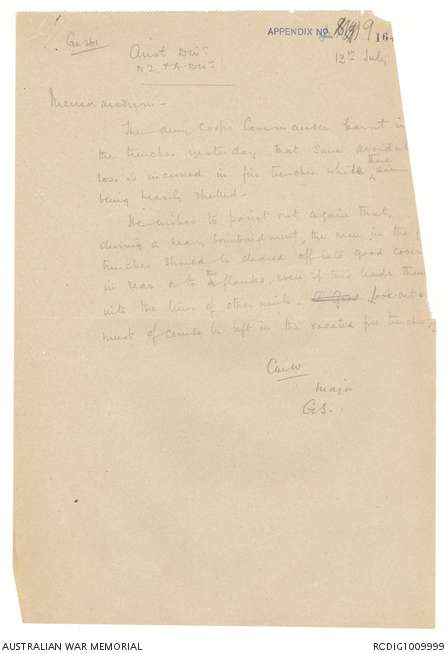 APPENDIX No. 9
16
Aust Div.
NZ & A Div.
13th July
Memorandum -
The Army Corps Commander learnt in
the trenches yesterday that some avoidab
loss is incurred in fire trenches while these are
being heavily shelled.
He wishes to point out again that,
during a heavy bombardment, the men in the
trenches should be cleared off into good cover
in rear or to the flanks, even if this leads them
into the lines of other units. Look outs
must of course be left in the vacated fire trenches,
Major
G.S.
AUSTRALIAN WAR MEMORIAL
RCDIG1009999